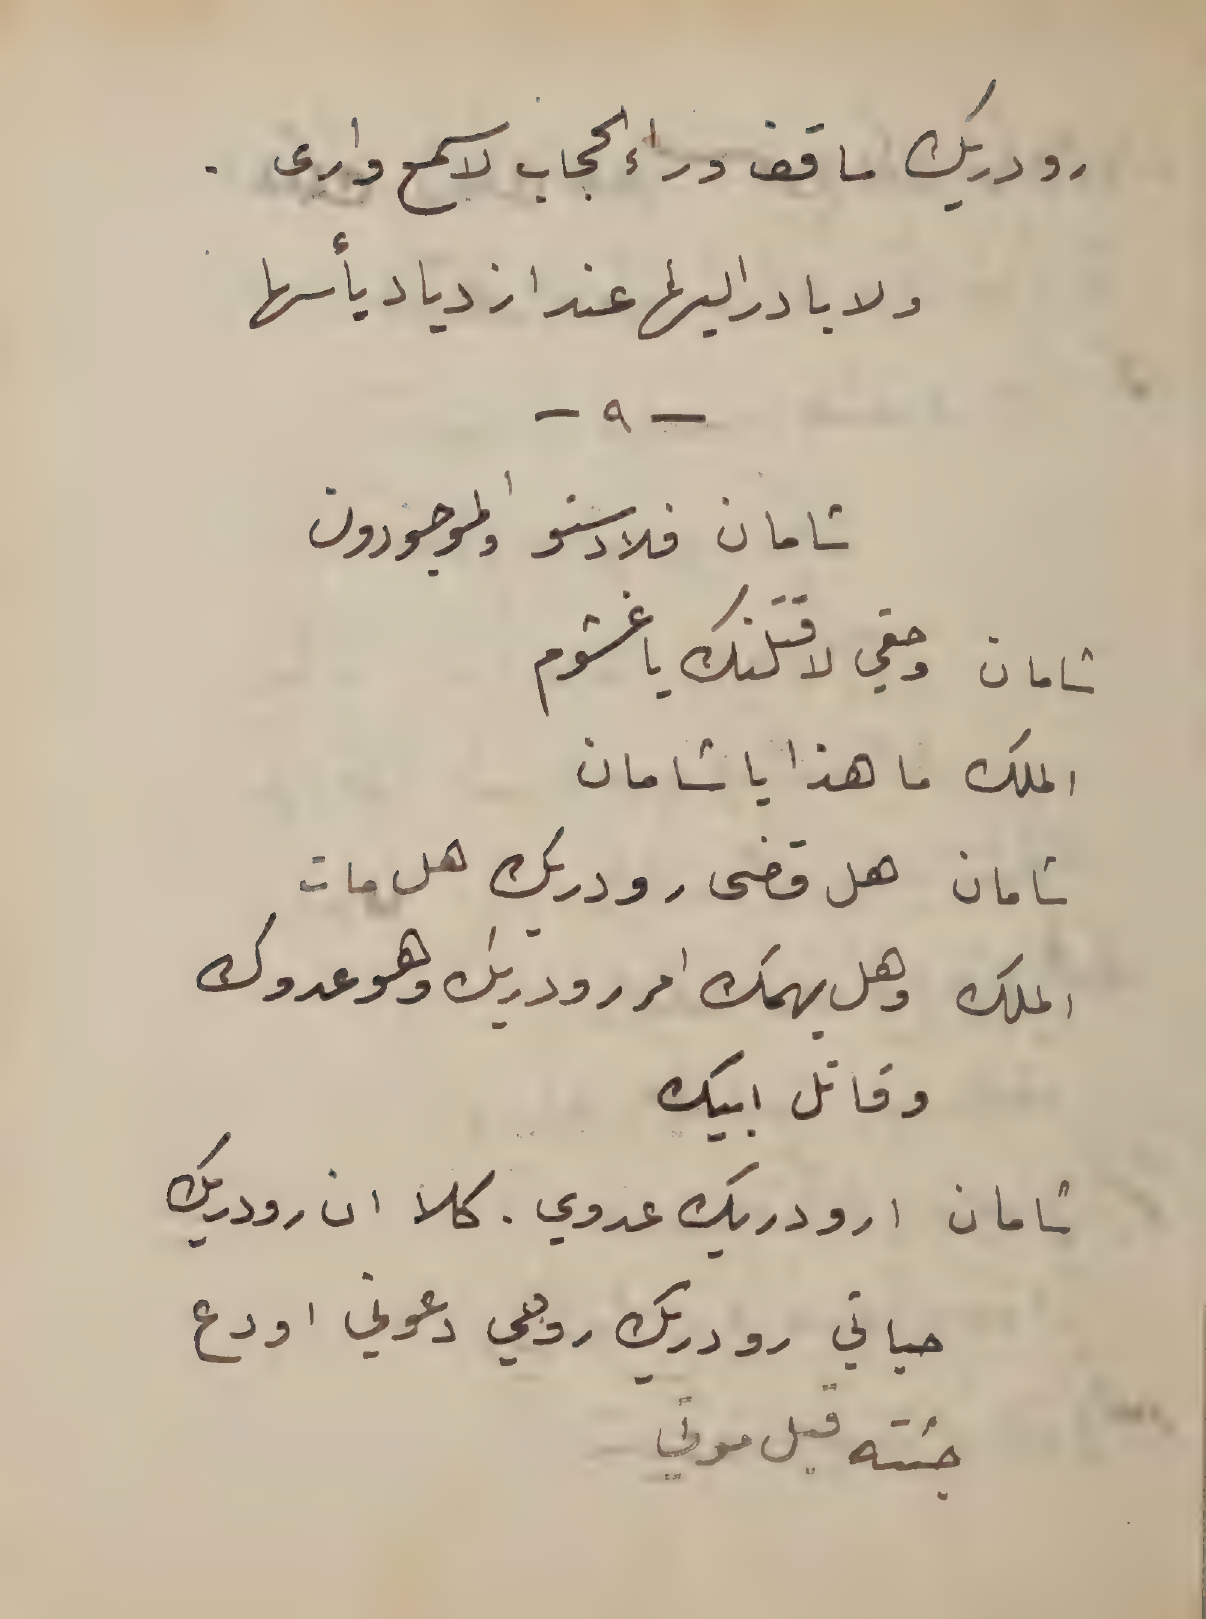 رودريك ساقف وراء الحجاب لاسمع وارى .
ولا بادر اليها عند ازدياد يأسها
— ٩ —
شامان فلادسنو والموجودون
شامان وحقي لاقتلنك يا غشوم
الملك ما هذا يا شامان
شامان هل قضى رودريك هل مات
الملك وهل يهمك امر رودريك وهو عدوك
وقاتل ابيك
شامان ارودريك عدوي . كلا ان رودريك
حياتي رودريك روحي دعوني اودع
جثته قبل موتي